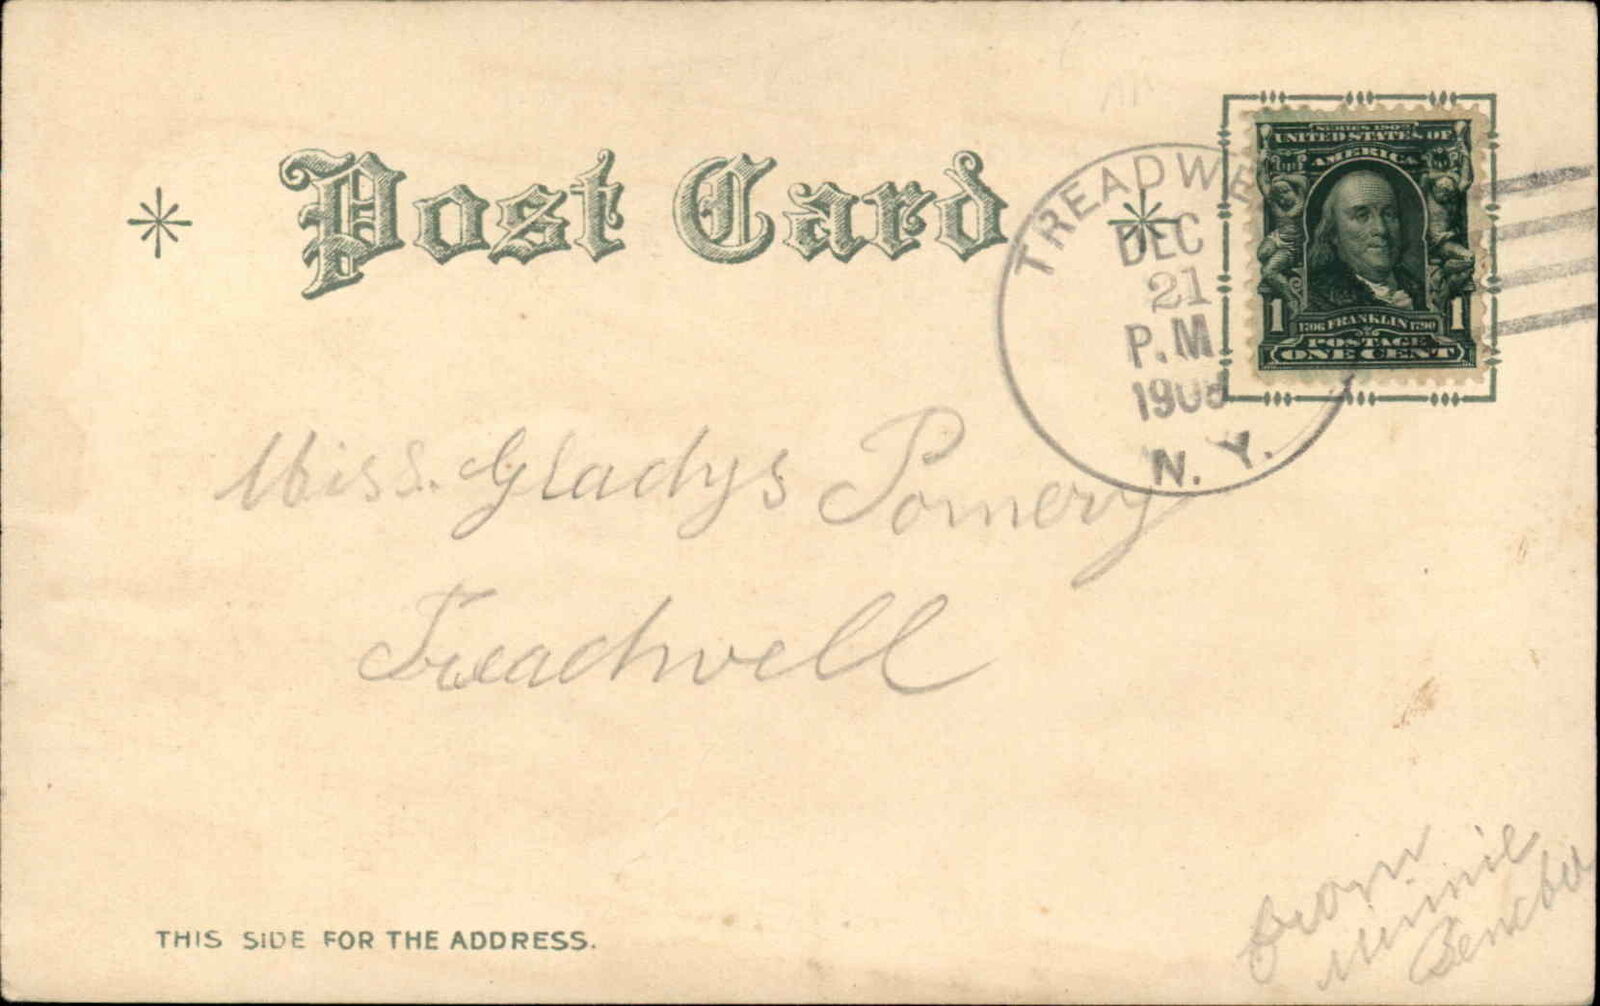 Post Card
TREADWE
DEC
21
P.M.
1908
N. Y.
SERIES 1902
UNITED STATES OF
AMERICA
1 1706 FRANKLIN 1790 1
POSTAGE
ONE CENT
Miss. Gladys Pomery
Treadwell
THIS SIDE FOR THE ADDRESS.
From
Minnie